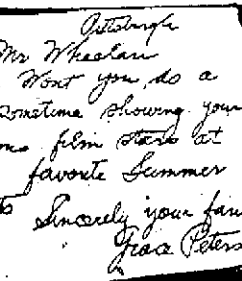 Pittsburgh
Mr Wheelan
Wont you, do a
sometime showing your
film stars at
favorite Summer
Sincerely your fan
Grace Peters